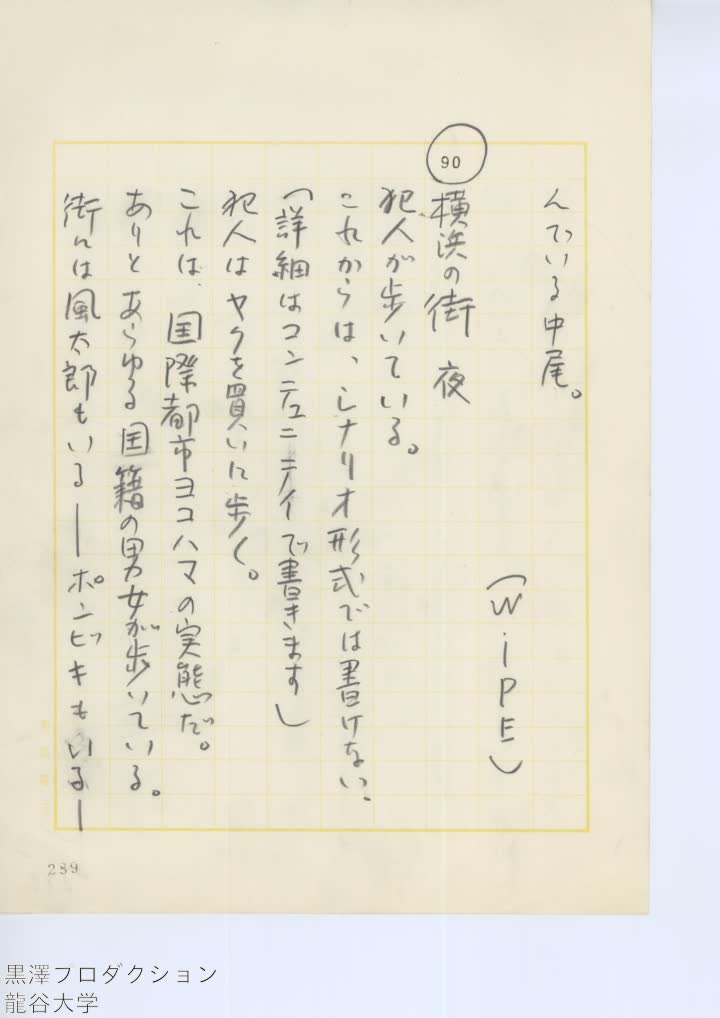 んでいる中尾。
（WiPE）
90
横浜の街 夜
犯人が歩いている。
これからは、シナリオ形式では書けない、
（詳細はコンテュニティイで書きます）
犯人はヤクを買いに歩く。
これは、国際都市ヨコハマの実態だ。
ありとあらゆる国籍の男女が歩いている。
街には風太郎もいる——ポンビキもいる—
289
黒澤プロダクション
龍谷大学